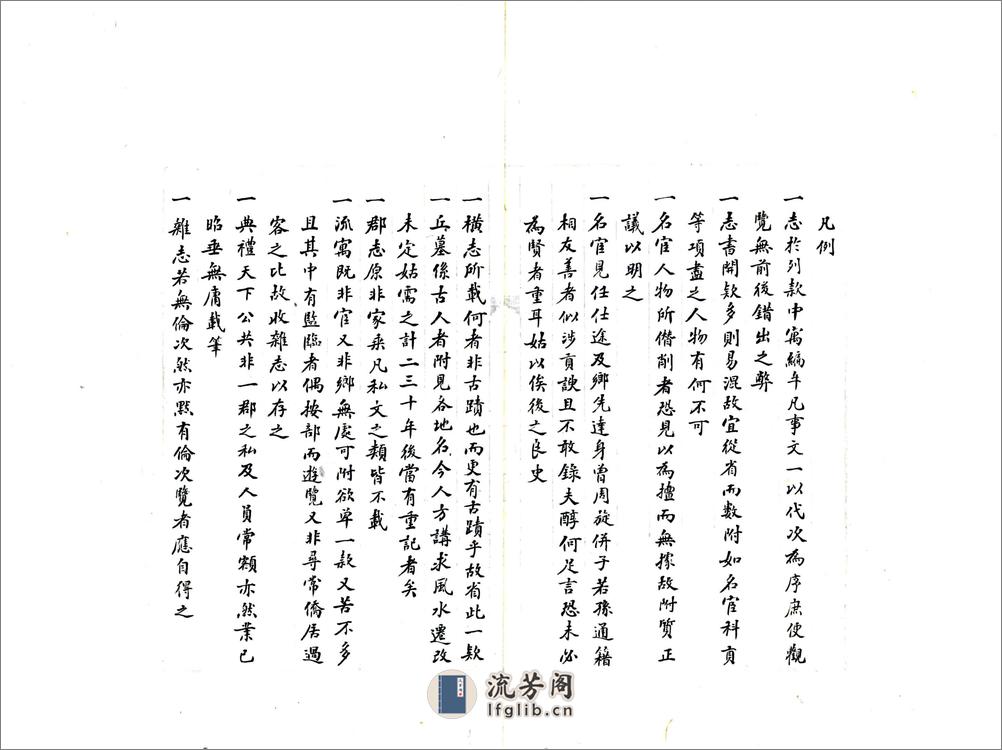 凡例
一志於列款中寓編年凡事文一以代次為序庶使觀
覽無前後錯出之弊
一志書開款多則易混故宜從省而數附如名宦科貢
等項盡之人物有何不可
一名宦人物所僭削者恐見以為擅而無據故附質正
議以明之
一名宦見任仕途及鄉先達身曾周旋併子若孫通籍
相友善者似涉貢諛且不敢錄夫醇何足言恐未必
為賢者重耳姑以俟後之良史
一橫志所載何者非古蹟也而更有古蹟乎故省此一款
一丘墓係古人者附見各地名今人方講求風水遷改
未定姑需之計二三十年後當有重記者矣
一郡志原非家乘凡私文之類皆不載
一流寓既非官又非鄉無處可附欲單一款又苦不多
且其中有監臨者偶按部而遊覽又非尋常僑居過
客之比故收雜志以存之
一典禮天下公共非一郡之私及人員常額亦然業已
昭垂無庸載筆
一雜志若無倫次然亦默有倫次覽者應自得之
流芳阁
lfglib.cn